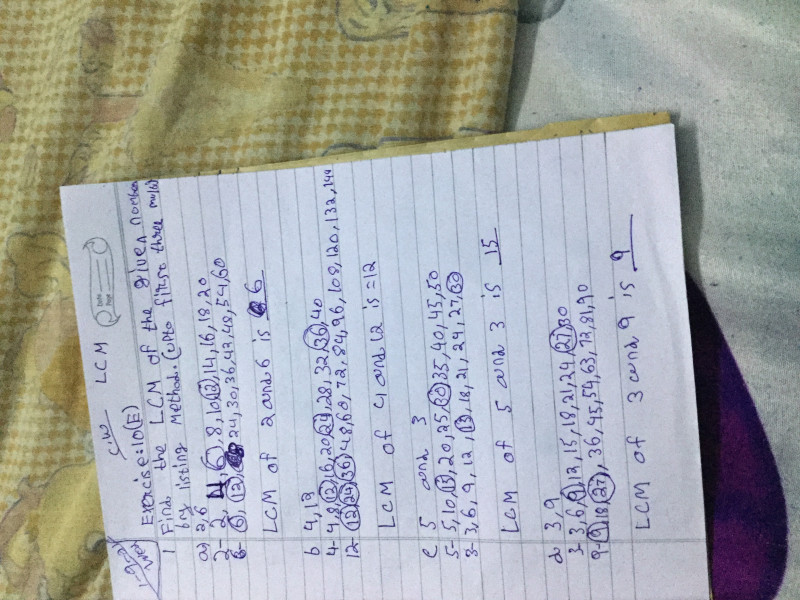 C/W LCM
Date
Page
Exercise:10(E)
1 Find the LCM of the given number
by listing method. (upto first three
a) 2,6
2- 2, 4, 6, 8, 10, 12, 14, 16, 18, 20
6- 6, 12, 24, 30, 36, 42, 48, 54, 60
LCM of 2 and 6 is 6
b 4,12
4- 4, 8, 12, 16, 20, 24, 28, 32, 36, 40
12- 12, 24, 36, 48, 60, 72, 84, 96, 108, 120, 132, 144
LCM of 4 and 12 is =12
c 5 and 3
5- 5, 10, 15, 20, 25, 30, 35, 40, 45, 50
3- 3, 6, 9, 12, 15, 18, 21, 24, 27, 30
LCM of 5 and 3 is 15
d 3,9
3- 3, 6, 9, 12, 15, 18, 21, 24, 27, 30
9- 9, 18, 27, 36, 45, 54, 63, 72, 81, 90
LCM of 3 and 9 is 9